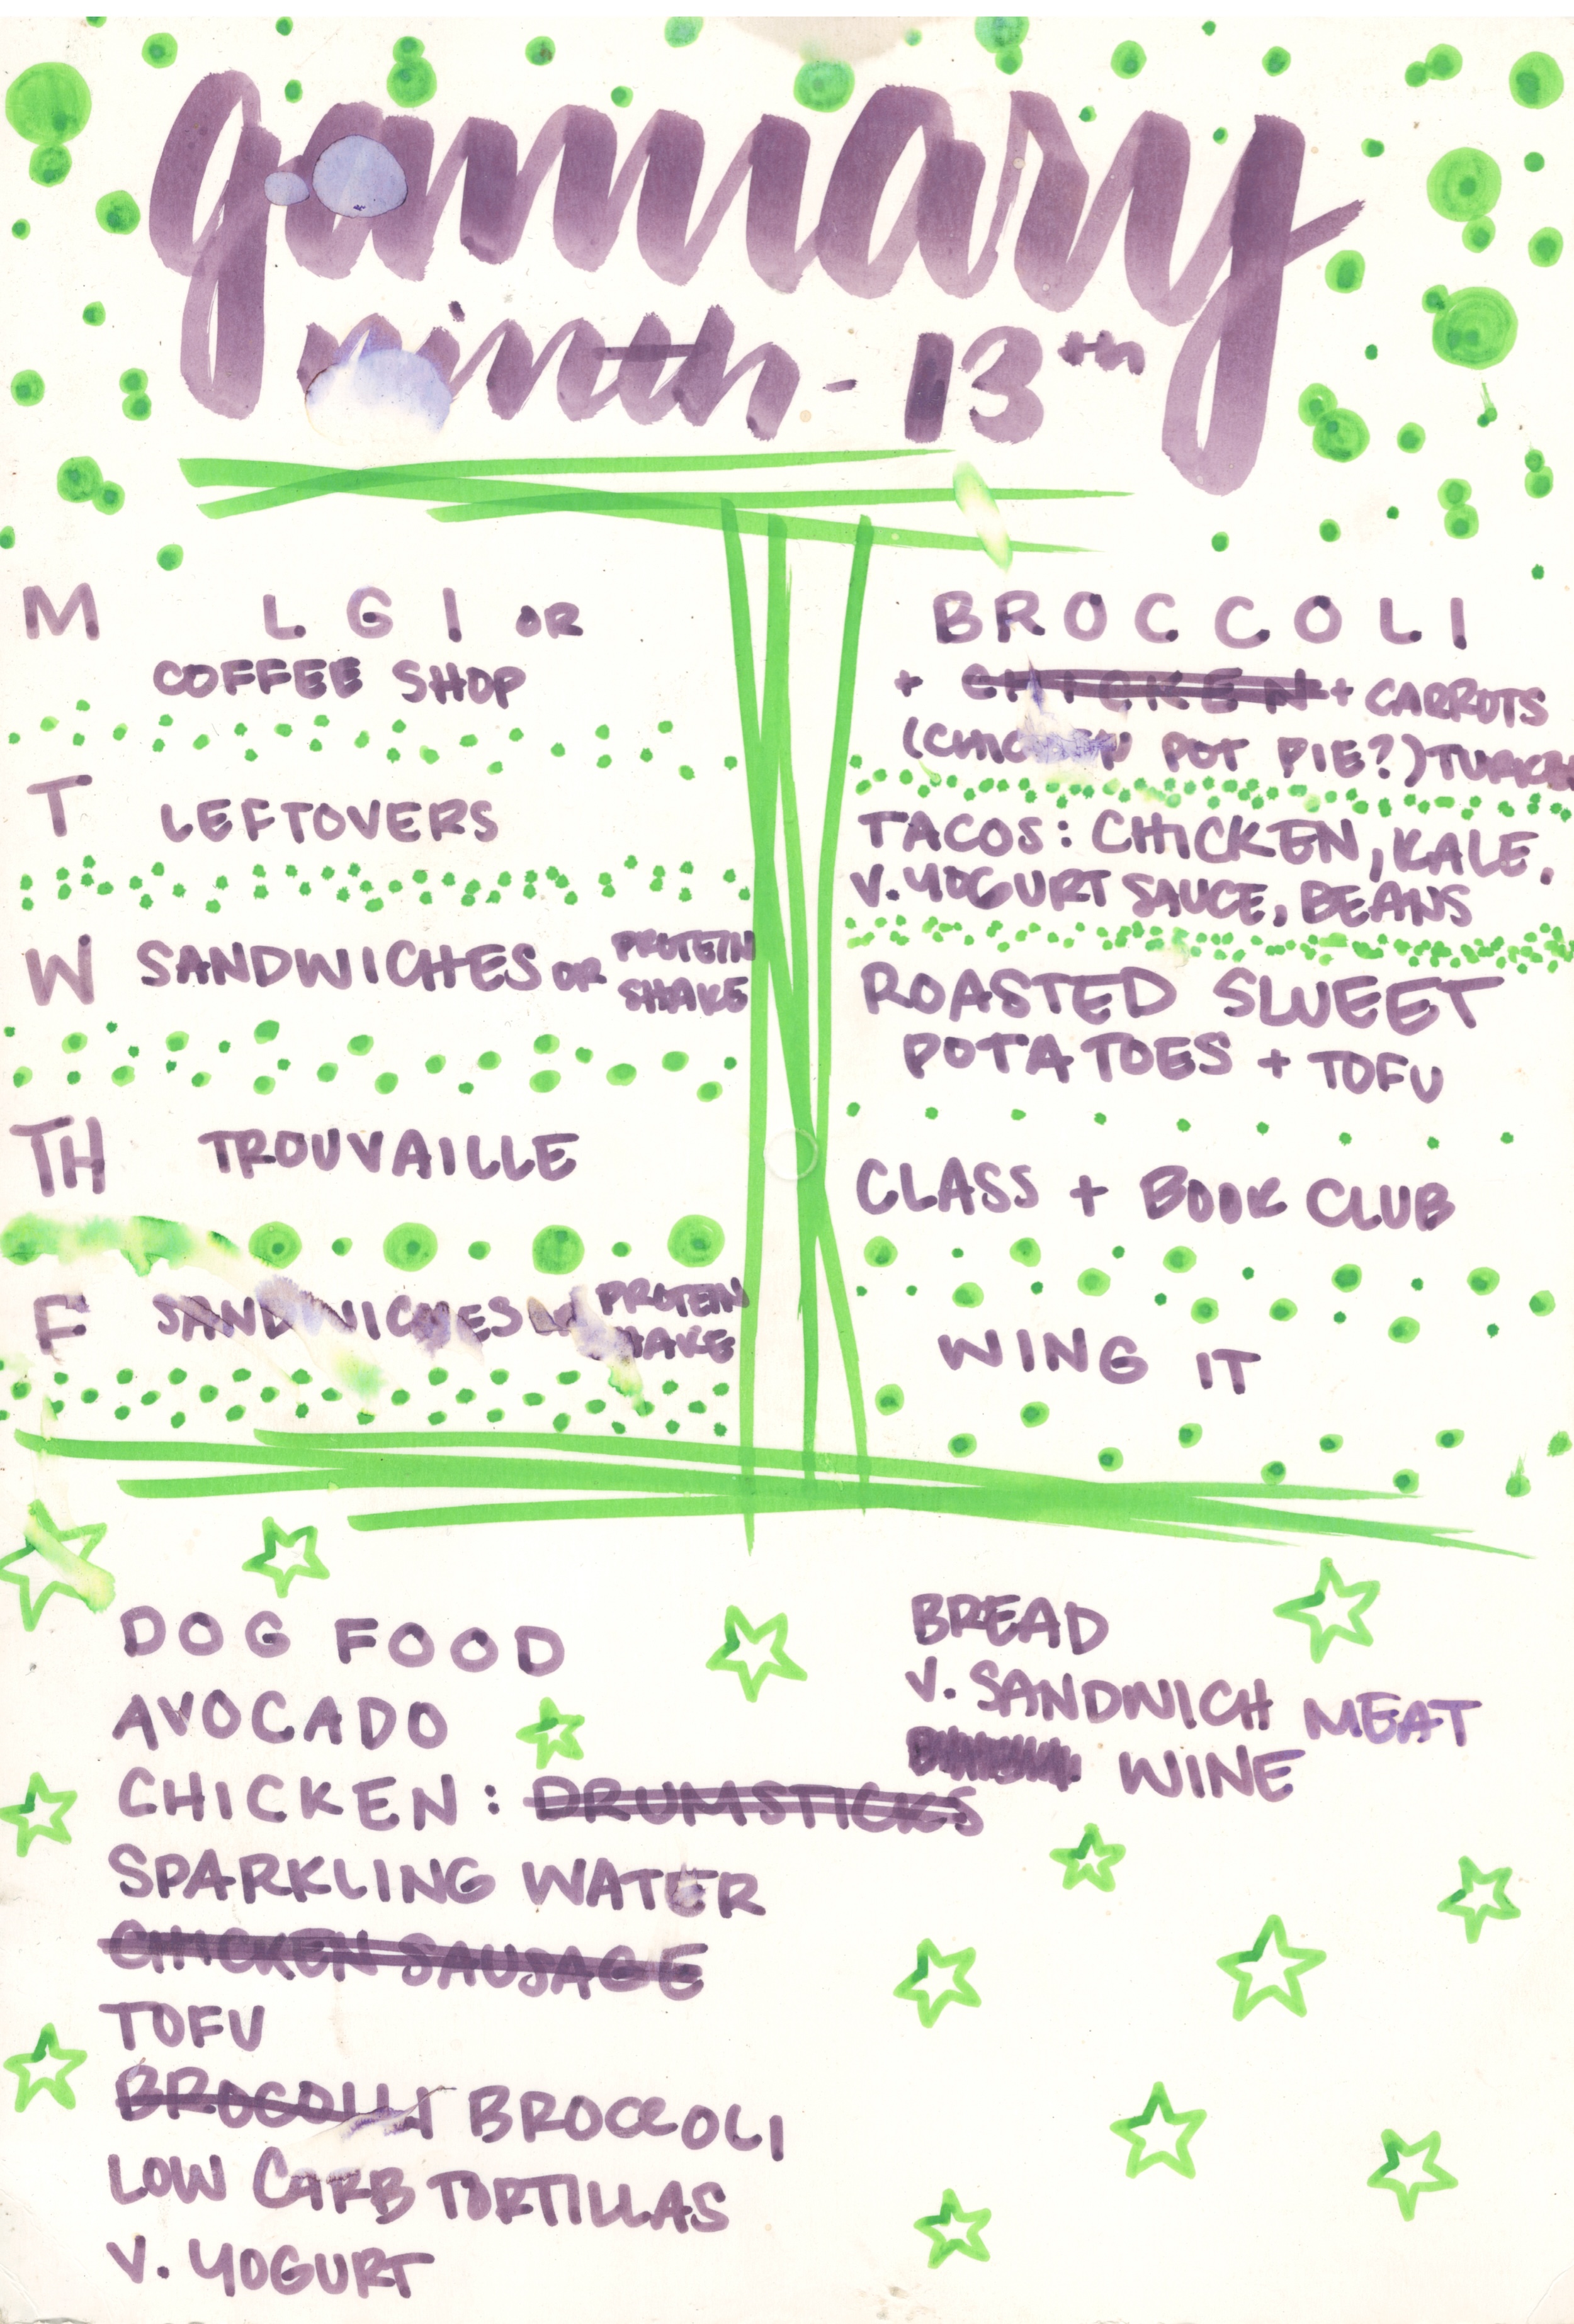 ganuary
ninth - 13th
M L G I OR
COFFEE SHOP
T LEFTOVERS
W SANDWICHES OR PROTEIN
SHAKE
TH TROUVAILLE
F SANDWICHES OR PROTEIN
SHAKE
BROCCOLI
+ CHICKEN + CARROTS
(CHICKEN POT PIE?) TURKEY
TACOS: CHICKEN, KALE,
V. YOGURT SAUCE, BEANS
ROASTED SWEET
POTATOES + TOFU
CLASS + BOOK CLUB
WING IT
DOG FOOD
AVOCADO
CHICKEN: DRUMSTICKS
SPARKLING WATER
CHICKEN SAUSAGE
TOFU
BROCOLLI BROCCOLI
LOW CARB TORTILLAS
V. YOGURT
BREAD
V. SANDWICH MEAT
WINE